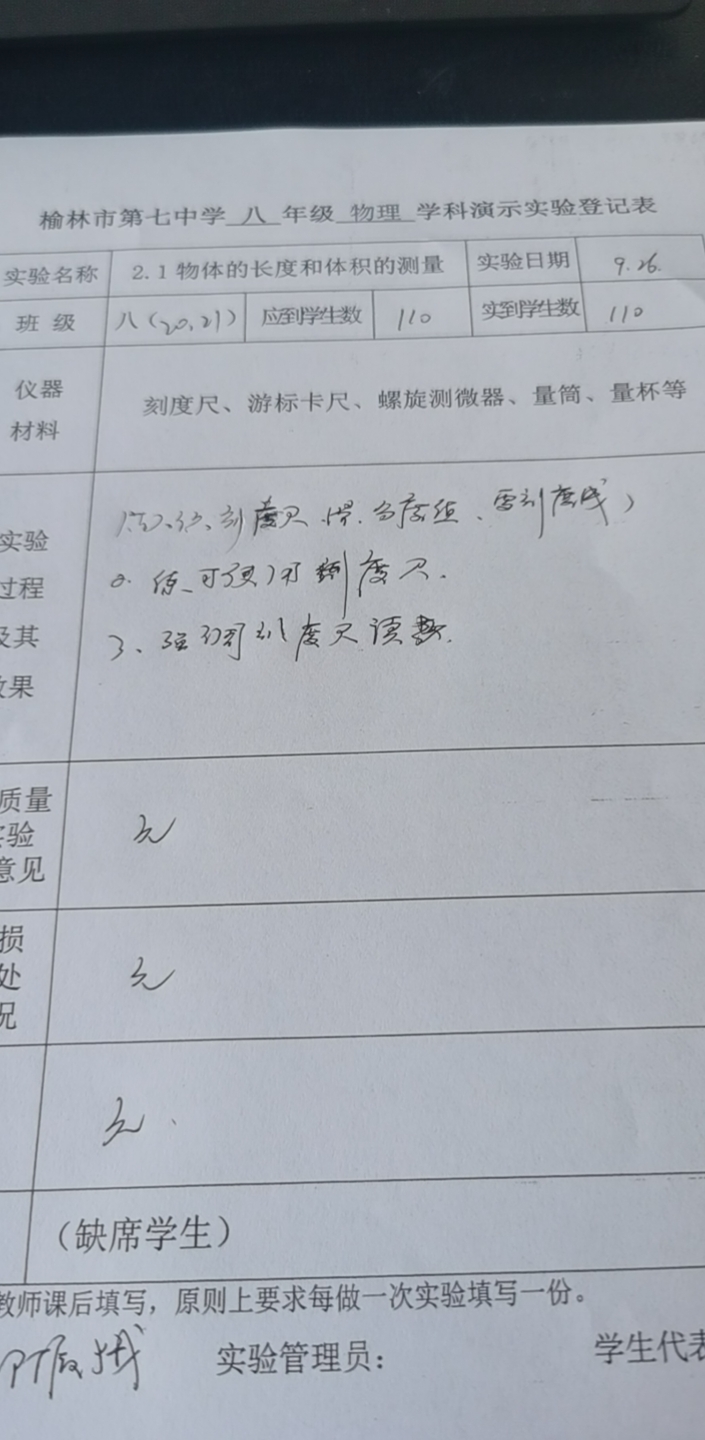 榆林市第七中学 八 年级 物理 学科演示实验登记表
实验名称 2.1 物体的长度和体积的测量 实验日期 9.26.
班 级 八(20,21) 应到学生数 110 实到学生数 110
仪器
材料
刻度尺、游标卡尺、螺旋测微器、量筒、量杯等
实验
过程
及其
效果
刻度尺
度尺.
3、强调刻度尺读数.
质量
实验
意见
无
损
处
况
无
无.
(缺席学生)
教师课后填写,原则上要求每做一次实验填写一份。
实验管理员: 学生代表